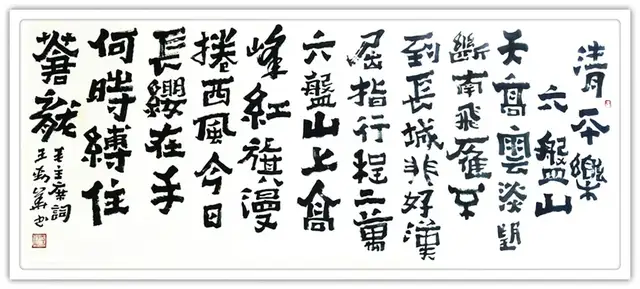 清平樂
六盤山
天高雲淡望
斷南飛雁不
到長城非好漢
屈指行程二萬
六盤山上高
峰紅旗漫
捲西風今日
長纓在手
何時縛住
蒼龍
毛主席詞
王